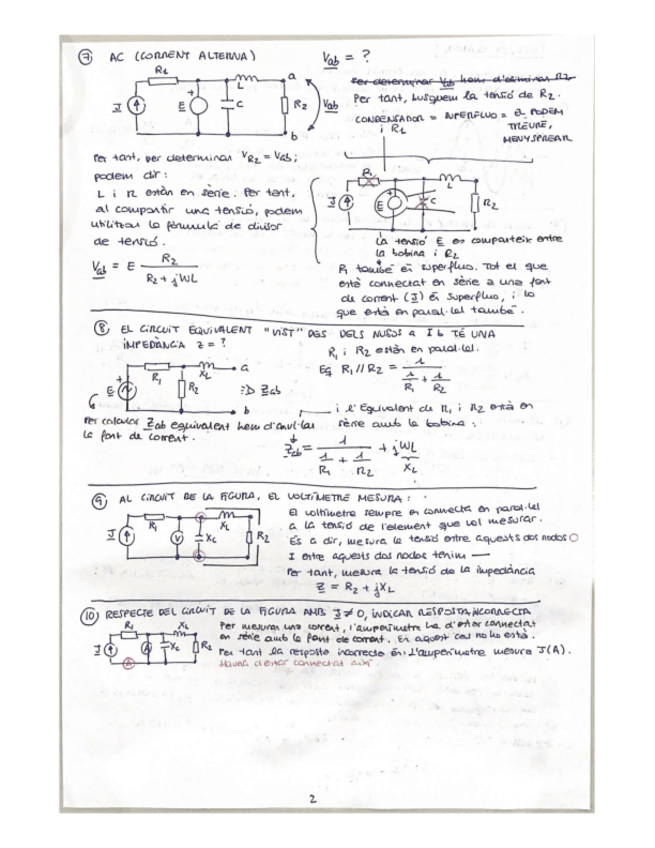 7 AC (CORRENT ALTERNA)
Vab = ?
Per determinar Vab hem d'eliminar R2
Per tant, busquem la tensió de R2.
CONDENSADOR = SUPERFLUO = EL PODEM
i R1
TREURE,
MENYSPREAR
R1
L
a
J
E
C
R2
Vab
b
Per tant, per determinar VR2 = Vab;
podem dir:
L i R estàn en sèrie. Per tant,
al compartir una tensió, podem
utilitzar la fórmula de divisor
de tensió.
Vab = E R2 / R2 + jWL
R1
L
J
E
C
R2
La tensió E es comparteix entre
la bobina i R2
R1 també és superfluo. Tot el que
està connectat en sèrie a una font
de corrent (J) és superfluo, i lo
que està en paral·lel també.
8 EL CIRCUIT EQUIVALENT "VIST" DES DELS NUSOS a I b TÉ UNA
IMPEDÀNCIA Z = ?
R1 i R2 estàn en paral·lel.
Eq R1 // R2 = 1 / 1/R1 + 1/R2
R1
XL
a
E
R2
Zab
b
Per calcular Zab equivalent hem d'anul·lar
la font de corrent.
i l'Equivalent de R1 i R2 està en
sèrie amb la bobina:
Zab = 1 / 1/R1 + 1/R2 + jWL
XL
9 AL CIRCUIT DE LA FIGURA, EL VOLTÍMETRE MESURA:
J
R1
V
XC
XL
R2
El voltímetre sempre es connecta en paral·lel
a la tensió de l'element que vol mesurar.
És a dir, mesura la tensió entre aquests dos nodos
I entre aquests dos nodos tenim
Per tant, mesura la tensió de la impedància
Z = R2 + jXL
10 RESPECTE DEL CIRCUIT DE LA FIGURA AMB J ≠ 0, INDICAR RESPOSTA INCORRECTA
R1
XL
J
A
XC
R2
A
Per mesurar una corrent, l'amperímetre ha d'estar connectat
en sèrie amb la font de corrent. En aquest cas no ho està.
Per tant la resposta incorrecta és: L'amperímetre mesura J(A).
Hauria d'estar connectat així
2